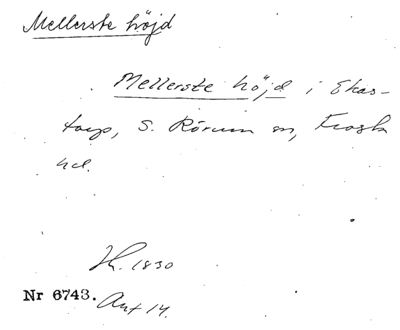 Mellerste höjd
Mellerste höjd i Ekas-
torp, S. Rörum sn, Frosta
hd.
Jh. 1830
Nr 6743. Ant 14.